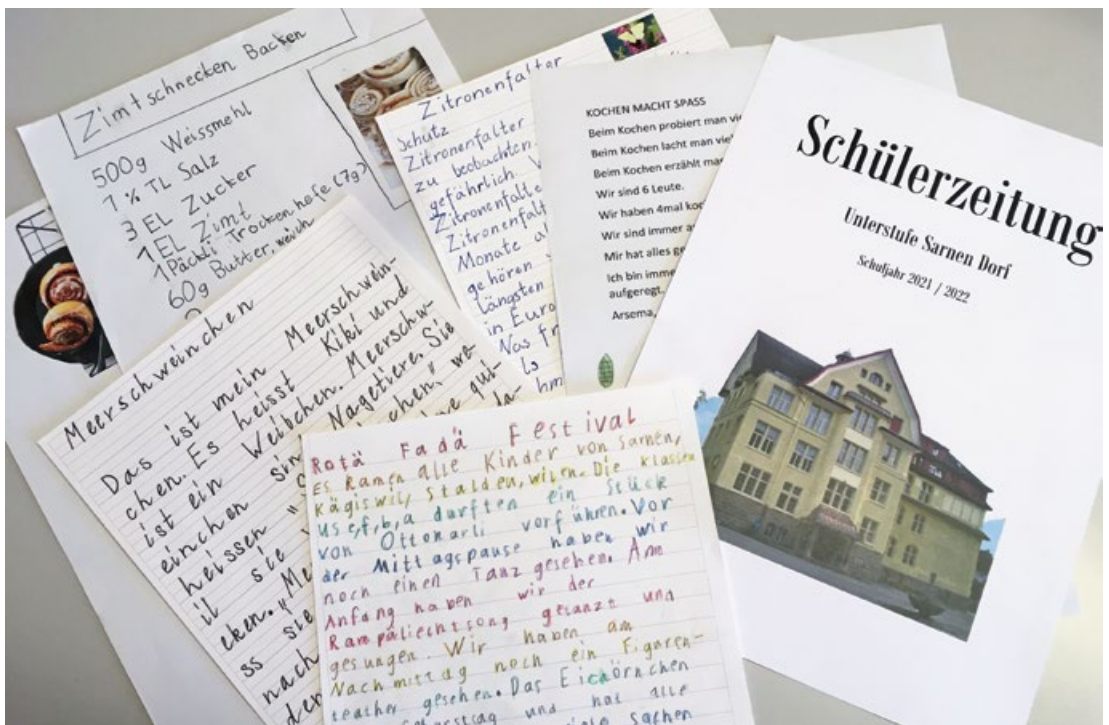 Zimtschnecken Backen
500g Weissmehl
1 ½ TL Salz
3 EL Zucker
1 EL Zimt
1 Päckli Trockenhefe (7g)
60g Butter, weich
Zitronenfalter
Schutz
Zitronenfalter
zu beobachten.
gefährlich
Zitronenfalte
Zitronenfalt
Monate
gehören
längsten
in Euro
KOCHEN MACHT SPASS
Beim Kochen probiert man
Beim Kochen lacht man
Beim Kochen erzählt
Wir sind 6 Leute.
Wir haben 4mal
Wir sind immer
Mir hat alles
Ich bin
aufgeregt,
Arsema,
Schülerzeitung
Unterstufe Sarnen Dorf
Schuljahr 2021 / 2022
Meerschweinchen
Das ist mein Meerschwein-
chen. Es heisst Kiki und
ist ein Weibchen. Meerschw-
einchen Nagetiere. Sie
heissen
il sie
eken.
ss sie
nach
den
Rotä Fadä Festival
Es kamen alle Kinder von Sarnen,
Kägiswil, Stalden, wilen. Die Klassen
US e,f,b,a durften ein Stück
von Ottomarli vorführen. Vor
der Mittagspause haben wir
noch einen Tanz gesehen. Am
Anfang haben wir der
Rampäliechtsong getanzt und
gesungen. Wir haben am
Nachmittag noch ein Figuren-
teather gesehen. Das Eichörnchen
und hat alle
Sachen